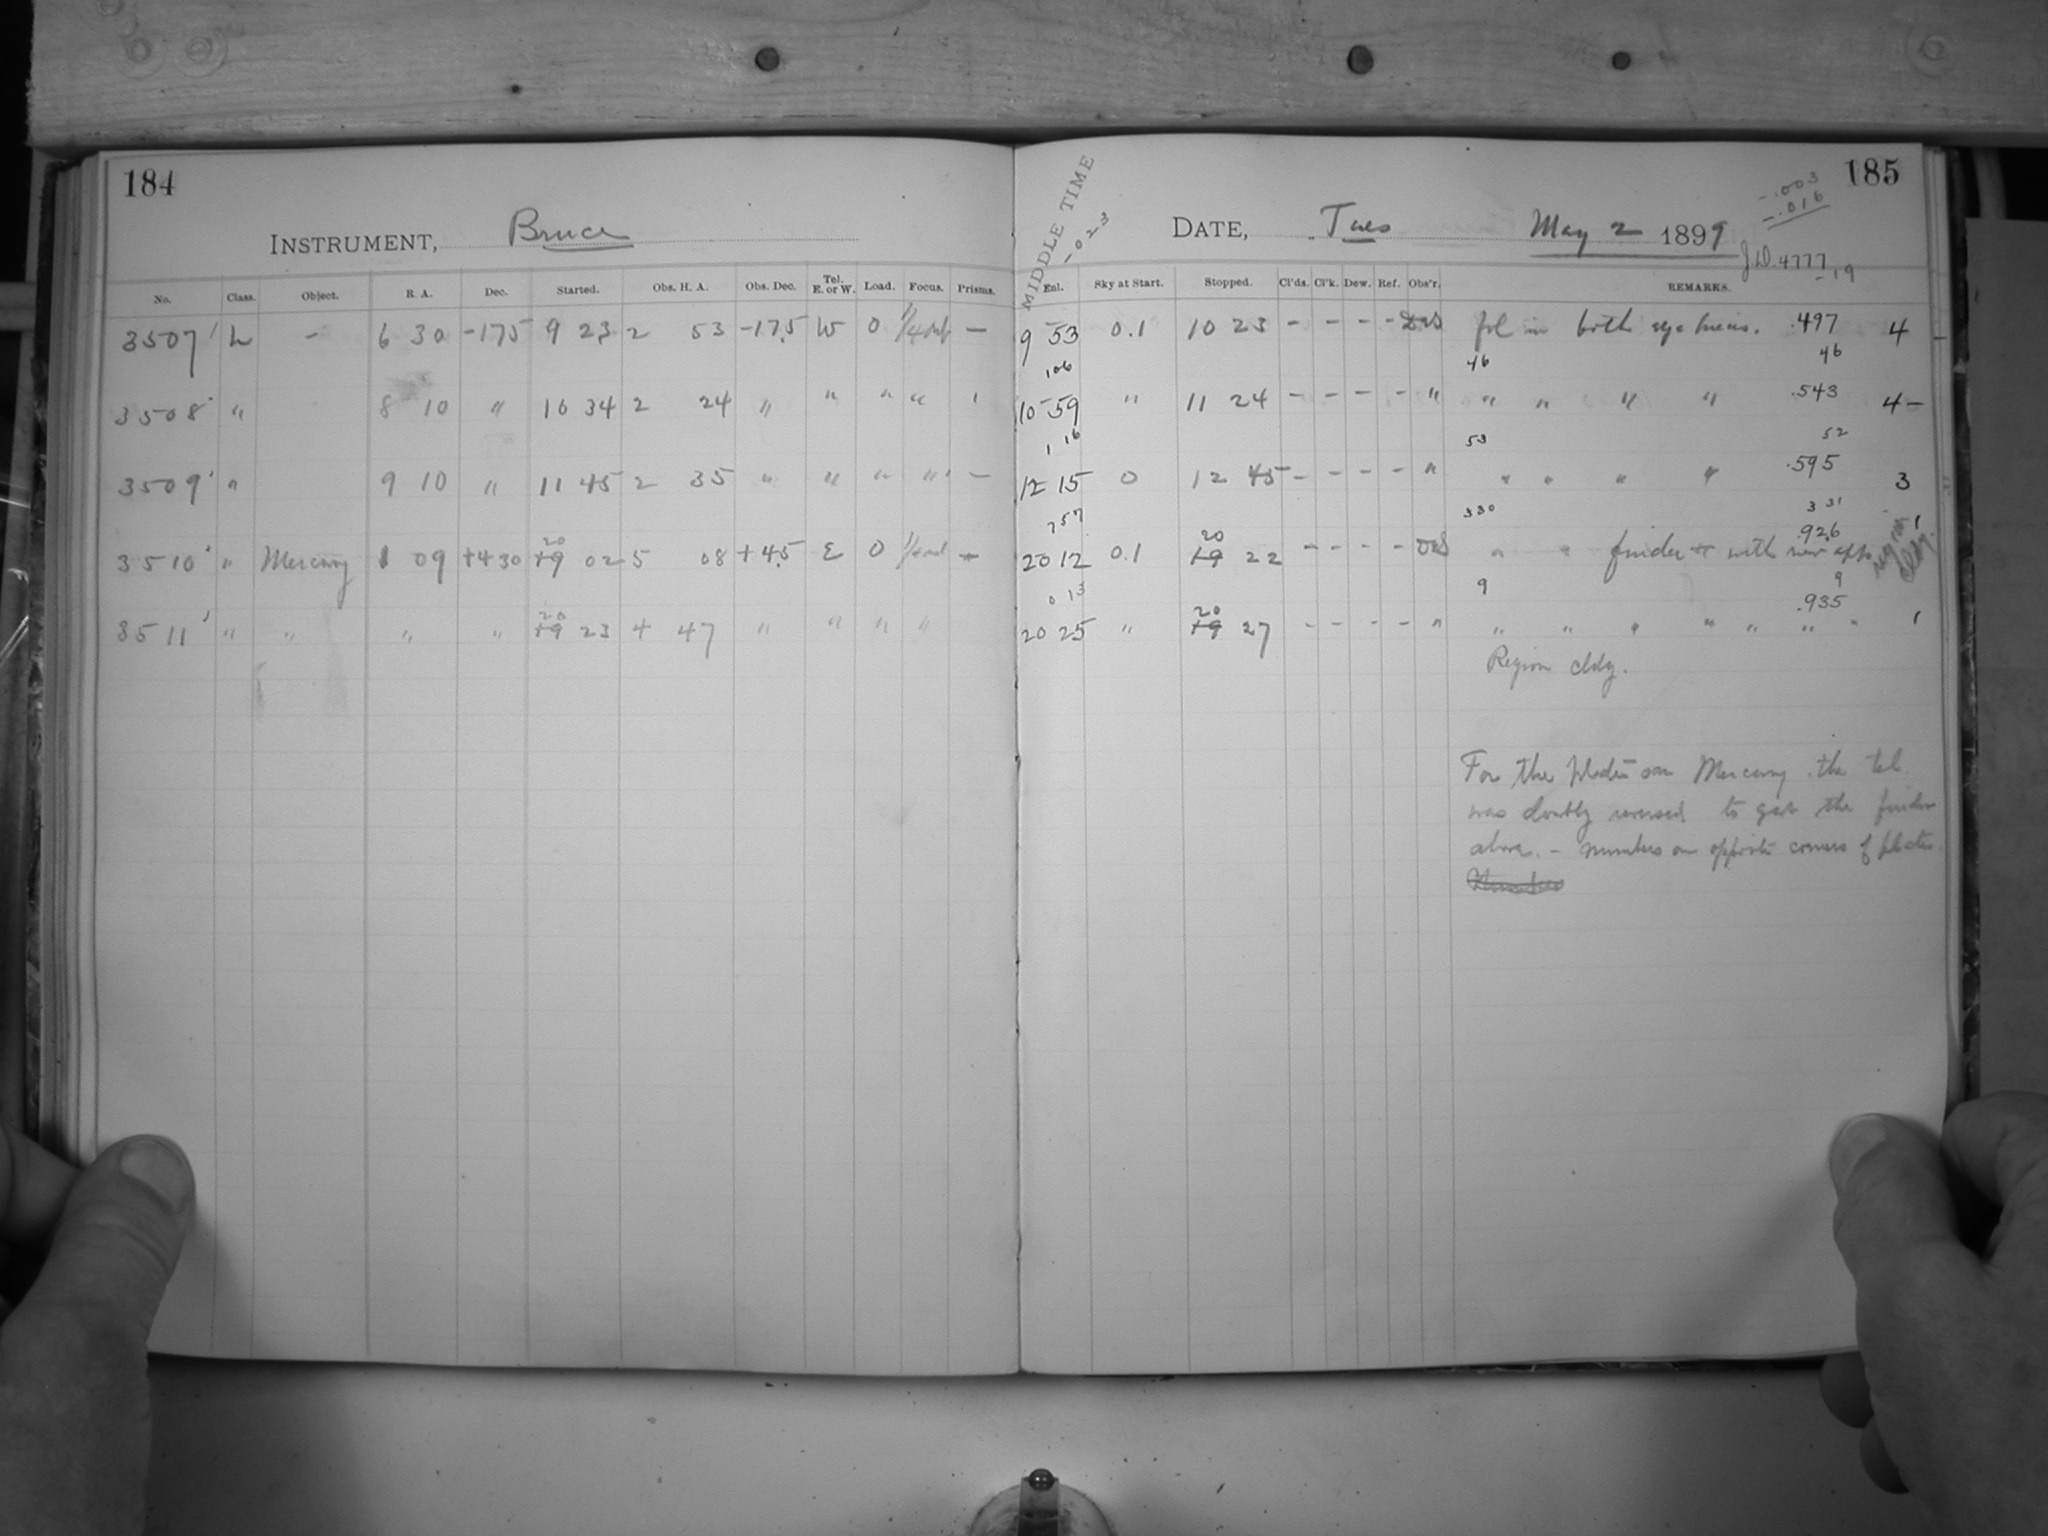 184
INSTRUMENT, Bruce
No. Class. Object. R. A. Dec. Started. Obs. H. A. Obs. Dec. Tel. E. or W. Load. Focus. Prisms.
3507 L - 6 30 -17.5 9 23 2 53 -17.5 W 0 —
3508 " 8 10 " 10 34 2 24 " " " "
3509 " 9 10 " 11 45 2 35 " " " " —
3510 " Mercury 1 09 +4 30 20 19 02 5 08 +4.5 E 0 —
3511 " " " " 20 19 23 4 47 " " " "
185
MIDDLE TIME
-023
DATE, Tues May 2 1899
-.003
-.016
J.D. 4777 -19
Enl. Sky at Start. Stopped. Cl'ds. Cl'k. Dew. Ref. Obs'r. REMARKS.
9 53 0.1 10 23 - - - - fol in both eye pieces. .497 4
106 46 46
10 59 " 11 24 - - - - " " " " " .543 4-
1 16 53 52
12 15 0 12 45 - - - - " " " " " .595 3
757 330 331
20 12 0.1 20 19 22 - - - - " " finder + with new app. .926 1
region cldy.
0 13 9 9
20 25 " 20 19 27 - - - - " " " " " " " " .935 1
Region cldy.
For the plates on Mercury the tel
was doubly reversed to get the finder
above. - numbers on opposite corners of plates.
Number